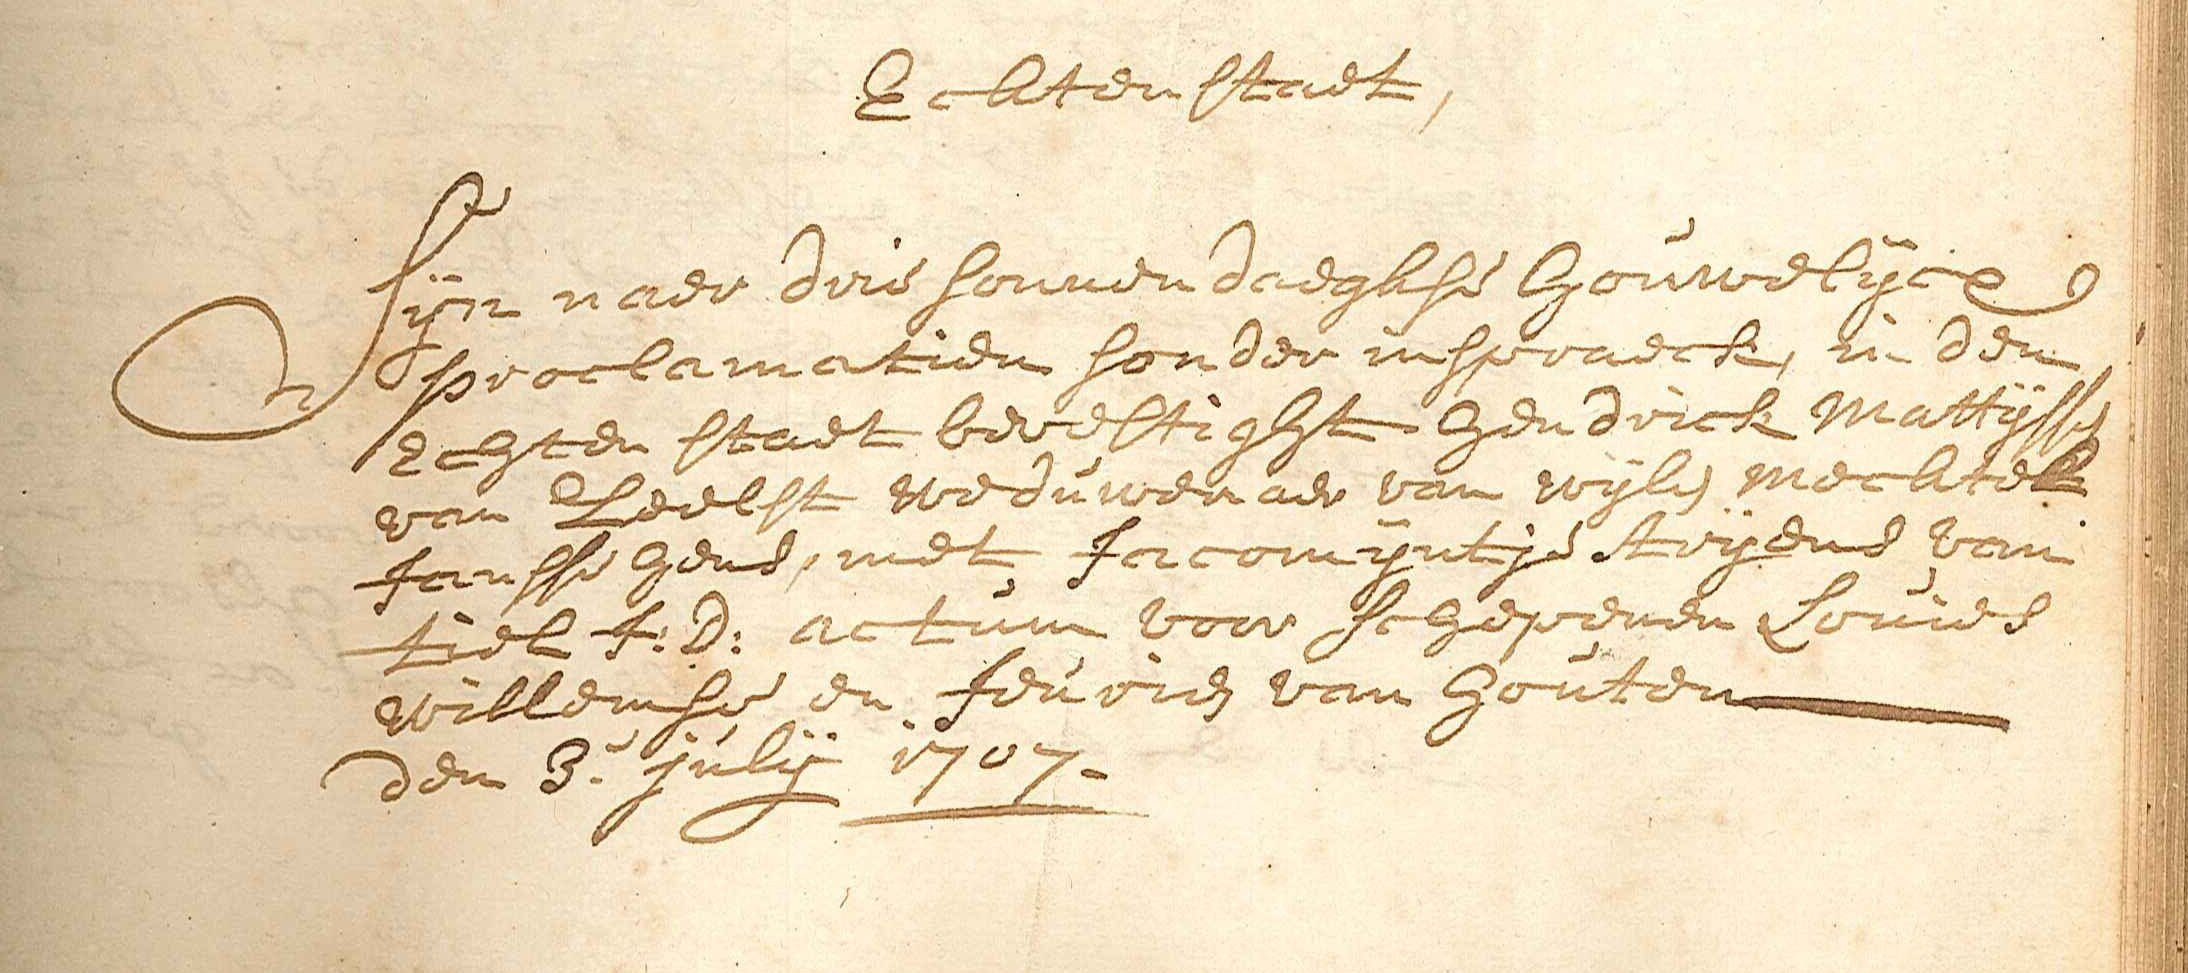 Echten staet,
Sijn naer drie sonnendaeghse houwelijcx
proclamatien sonder inspraeck, in den
Echten staet bevestight Hendrick Mattijsse
van Leelst weduwenaer van wijle Mechtel
Jansse Hens, met Jacomijntje Strijens van
tiel J: D: actum voor schepenen Louies
willemse en Jeurien van Houten
den 3. julij 1707.